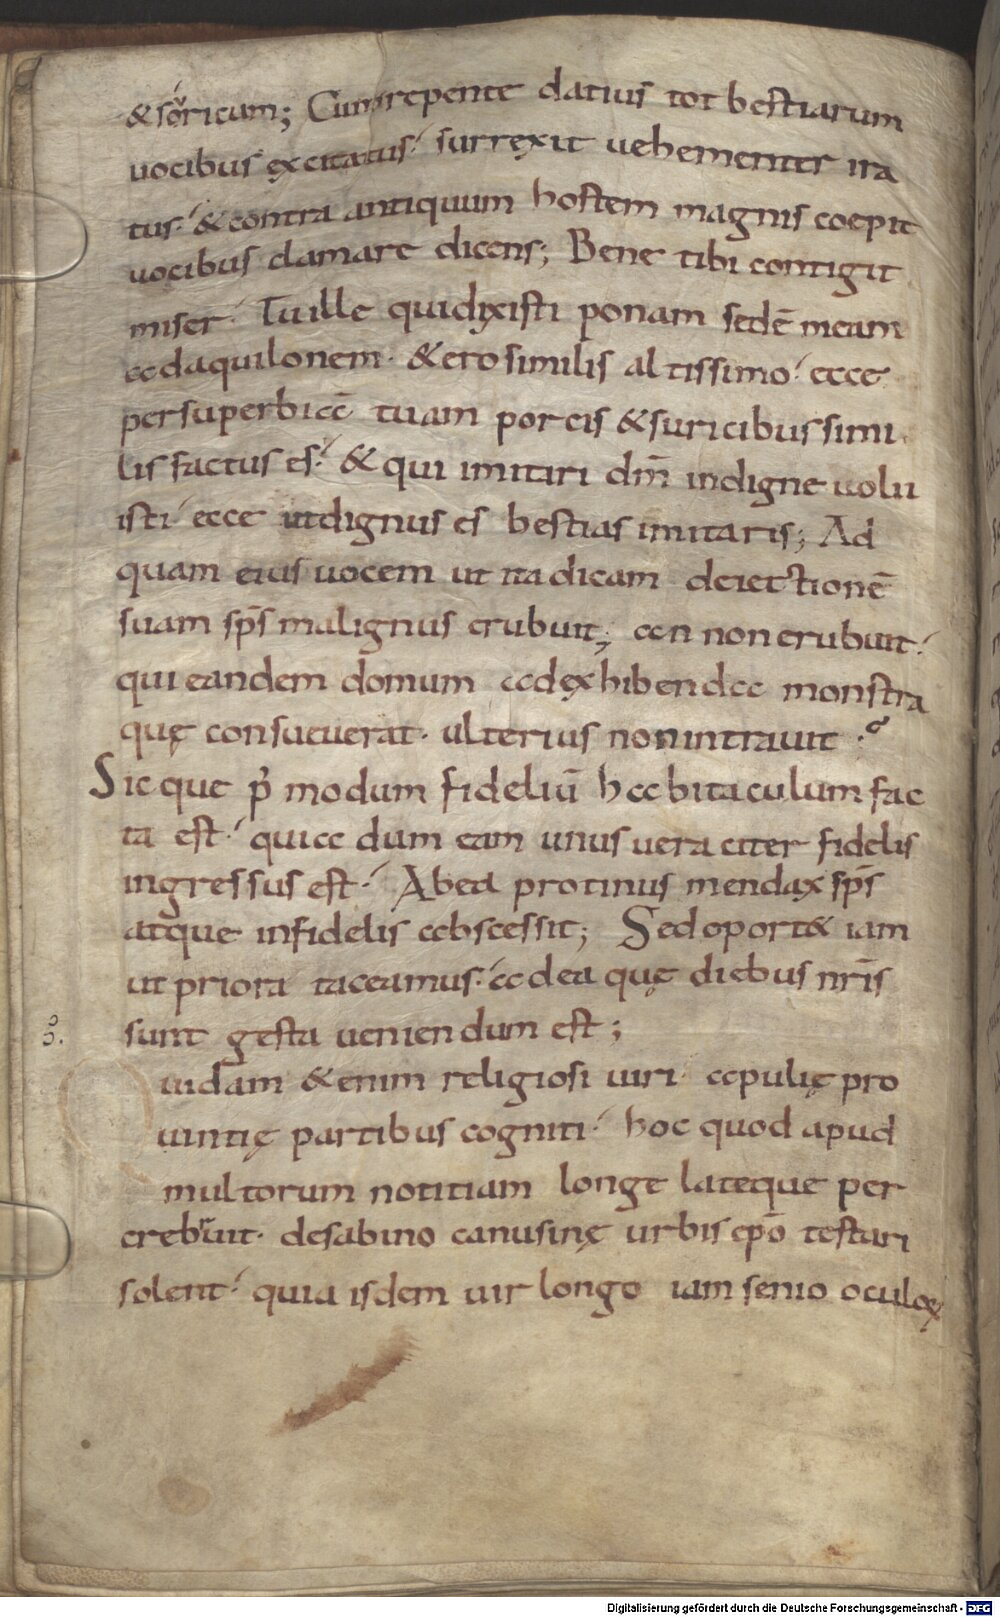 & soricum; Cum repente datius tot bestiarum
uocibus excitatus surrexit uehementer ira
tus· & contra antiquum hostem magnis coepit
uocibus clamare dicens; Bene tibi contigit
miser· Tu ille qui dixisti ponam sedē meam
ad aquilonem· & ero similis altissimo ecce
per superbiā tuam porcis & suricibus simi
lis factus es· & qui imitari dm̄ indigne uolu
isti ecce ut dignus es bestias imitaris; Ad
quam eius uocem ut ita dicam deiectionē
suam sp̄s malignus erubuit; an non erubuit
qui eandem domum ad exhibenda monstra
quę consueuerat· ulterius non intrauit·
Sic que p̄ modum fideliū habitaculum fac
ta est· quia dum eam unus ueraciter fidelis
ingressus est· Ab ea protinus mendax sp̄s
atque infidelis abscessit; Sed oport& iam
ut priora taceamus· ad ea quę diebus nr̄is
sunt gesta ueniendum est;
3.
uidam &enim religiosi uiri apulię pro
uintię partibus cogniti· hoc quod apud
multorum notitiam longe lateque per
crebruit· de sabino canusinę urbis ep̄o testari
solent· quia isdem uir longo iam senio oculoꝝ
Digitalisierung gefördert durch die Deutsche Forschungsgemeinschaft - DFG